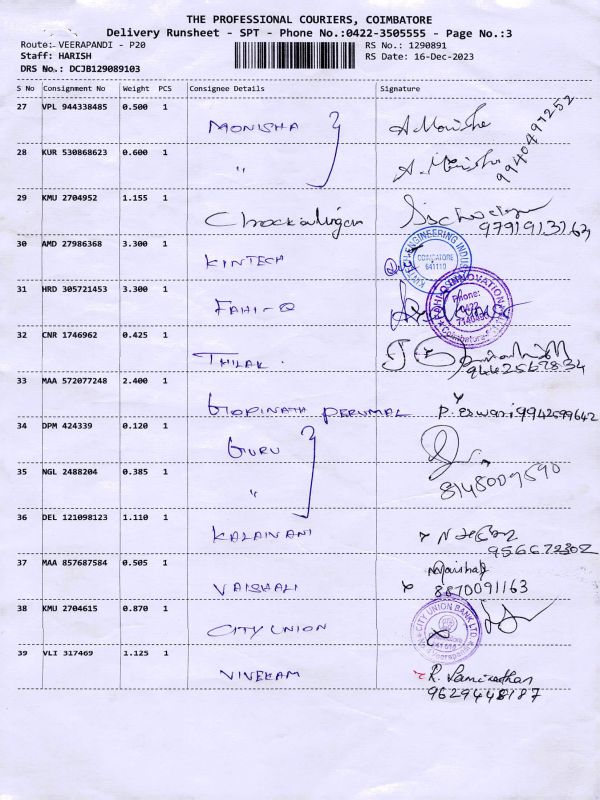 THE PROFESSIONAL COURIERS, COIMBATORE
Delivery Runsheet - SPT - Phone No.:0422-3505555 - Page No.:3
Route: VEERAPANDI - P20
RS No.: 1290891
Staff: HARISH
RS Date: 16-Dec-2023
DRS No.: DCJB129089103
S No Consignment No Weight PCS Consignee Details Signature
27 VPL 944338485 0.500 1 MONISHA A. Monisha 9940497252
28 KUR 530868623 0.600 1 " A. Monisha
29 KMU 2704952 1.155 1 Chockalingam 9791913763
30 AMD 27986368 3.300 1 KINTECH
ENGINEERING INDUS
COIMBATORE
641110
31 HRD 305721453 3.300 1 FAHI-Q
INNOVATION
Phone:
0422
Coimbatore
32 CNR 1746962 0.425 1 THILAK. 9442567834
33 MAA 572077248 2.400 1 GOPINATH PERUMAL P. eswari 9942599642
34 DPM 424339 0.120 1 GURU
35 NGL 2488204 0.385 1 " 8148007590
36 DEL 121098123 1.110 1 KALAIVANI 956672302
37 MAA 857687584 0.505 1 VAISHALI Vaishali
8870091163
38 KMU 2704615 0.870 1 CITY UNION
CITY UNION BANK LTD
39 VLI 317469 1.125 1 VIVEKAM R.
9629448187